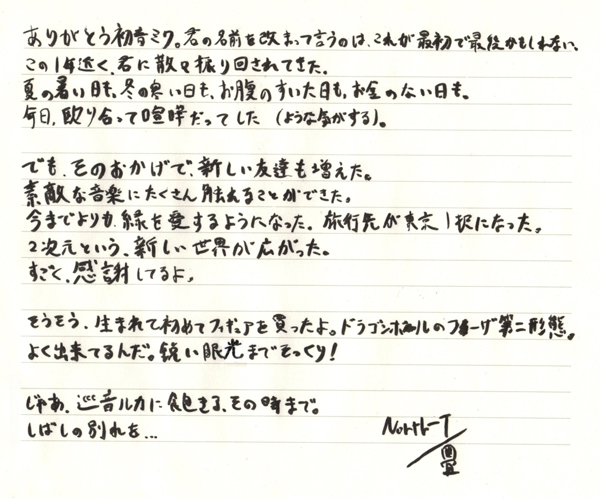 ありがとう初音ミク。君の名前を改まって言うのは、これが最初で最後かもしれない。
この1年近く、君に散々振り回されてきた。
夏の暑い日も、冬の寒い日も、お腹のすいた日も、お金のない日も。
毎日、殴り合って喧嘩だってした（ような気がする）。
でも、そのおかげで、新しい友達も増えた。
素敵な音楽にたくさん触れることができた。
今までよりも、緑を愛するようになった。旅行先が東京1択になった。
2次元という、新しい世界が広がった。
すごく、感謝してるよ。
そうそう、生まれて初めてフィギュアを買ったよ。ドラゴンボールのフリーザ第二形態。
よく出来てるんだ。鋭い眼光までそっくり！
じゃあ、巡音ルカに飽きる、その時まで。
しばしの別れを...
North-T